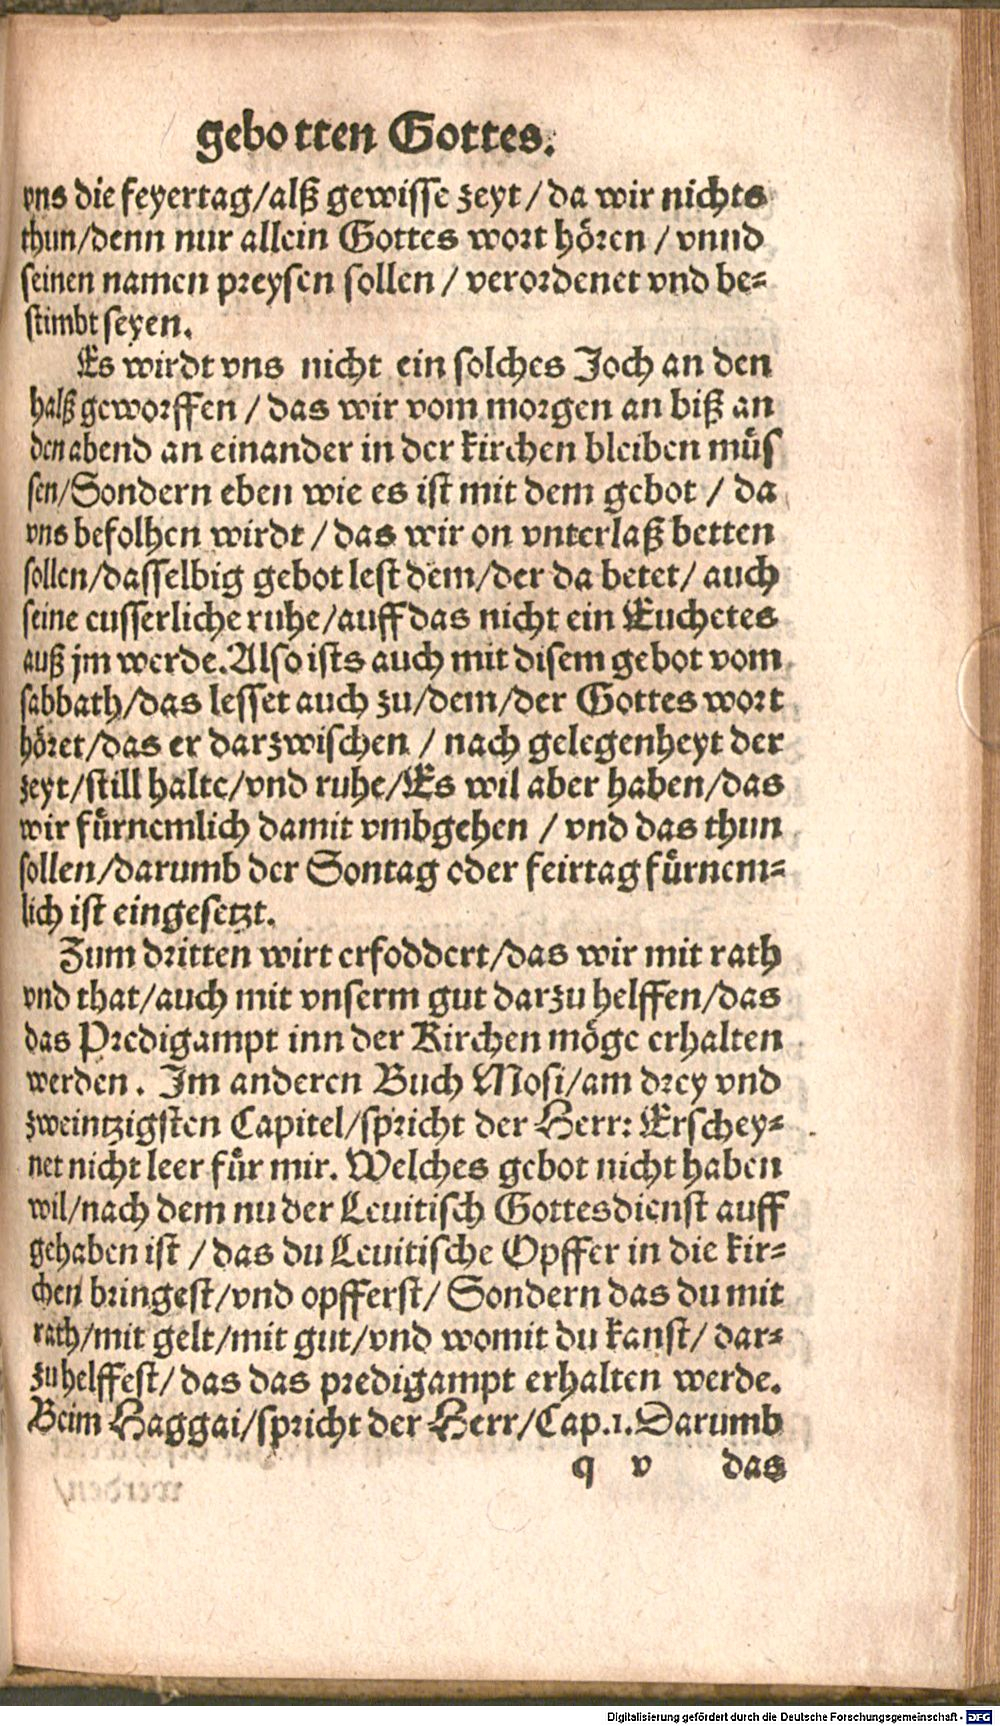 gebotten Gottes.
vns die feyertag/alß gewisse zeyt / da wir nichts
thun/denn nur allein Gottes wort hören / vnnd
seinen namen preysen sollen / verordenet vnd be=
stimbt seyen.
Es wirdt vns nicht ein solches Joch an den
halß geworffen / das wir vom morgen an biß an
den abend an einander in der kirchen bleiben müs
sen/Sondern eben wie es ist mit dem gebot / da
vns befolhen wirdt / das wir on vnterlaß betten
sollen/dasselbig gebot lest dem/der da betet/ auch
seine eusserliche ruhe/auff das nicht ein Euchetes
auß jm werde.Also ists auch mit disem gebot vom
sabbath/das lesset auch zu/dem/der Gottes wort
höret/das er darzwischen / nach gelegenheyt der
zeyt/still halte/vnd ruhe/Es wil aber haben/das
wir fürnemlich damit vmbgehen / vnd das thun
sollen/darumb der Sontag oder feirtag fürnem=
lich ist eingesetzt.
Zum dritten wirt erfoddert/das wir mit rath
vnd that/auch mit vnserm gut darzu helffen/das
das Predigampt inn der Kirchen möge erhalten
werden. Im anderen Buch Mosi/am drey vnd
zweintzigsten Capitel/spricht der Herr: Erschey=
net nicht leer für mir. Welches gebot nicht haben
wil/nach dem nu der Leuitisch Gottesdienst auff
gehaben ist / das du Leuitische Opffer in die kir=
chen bringest/vnd opfferst/ Sondern das du mit
rath/mit gelt/mit gut/vnd womit du kanst/ dar=
zu helffest/das das predigampt erhalten werde.
Beim Haggai/spricht der Herr/Cap.1.Darumb
q v das
Digitalisierung gefördert durch die Deutsche Forschungsgemeinschaft - DFG